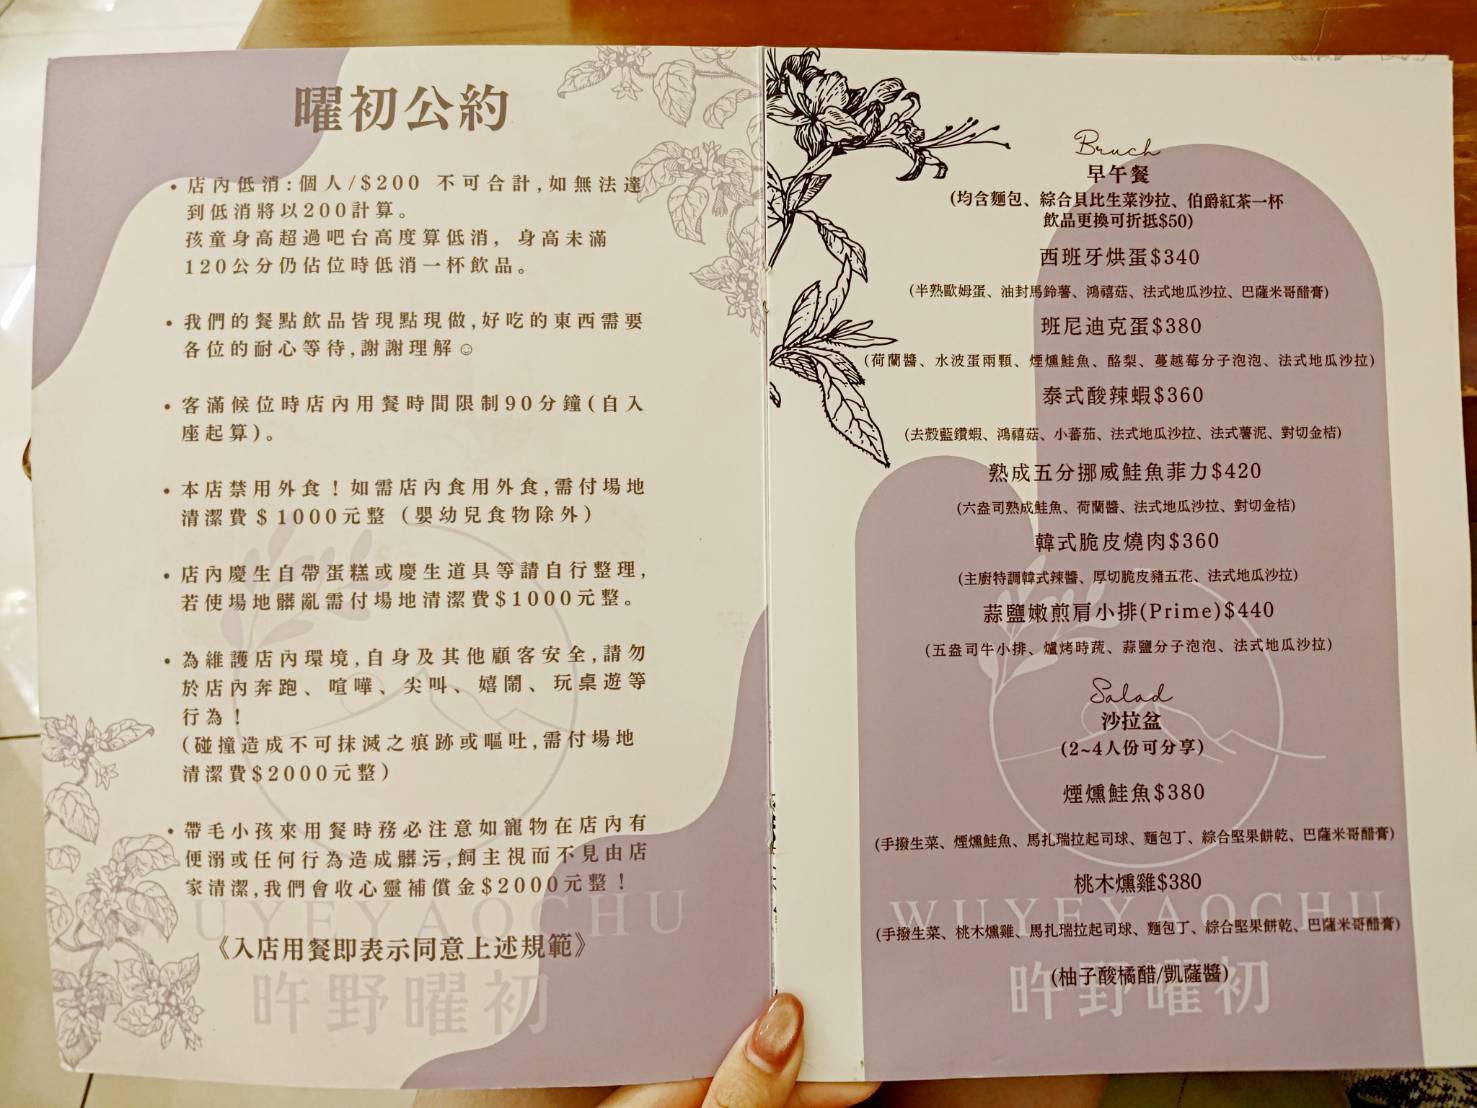 曜初公約
• 店內低消:個人/$200 不可合計,如無法達
到低消將以200計算。
孩童身高超過吧台高度算低消, 身高未滿
120公分仍佔位時低消一杯飲品。
• 我們的餐點飲品皆現點現做,好吃的東西需要
各位的耐心等待,謝謝理解☺
• 客滿候位時店內用餐時間限制90分鐘(自入
座起算)。
• 本店禁用外食！如需店內食用外食,需付場地
清潔費＄1000元整 (嬰幼兒食物除外)
• 店內慶生自帶蛋糕或慶生道具等請自行整理,
若使場地髒亂需付場地清潔費$1000元整。
• 為維護店內環境,自身及其他顧客安全,請勿
於店內奔跑、喧嘩、尖叫、嬉鬧、玩桌遊等
行為！
(碰撞造成不可抹滅之痕跡或嘔吐,需付場地
清潔費$2000元整)
• 帶毛小孩來用餐時務必注意如寵物在店內有
便溺或任何行為造成髒污,飼主視而不見由店
家清潔,我們會收心靈補償金$2000元整！
UYEYAOCHU
《入店用餐即表示同意上述規範》
旿野曜初
Bruch
早午餐
(均含麵包、綜合貝比生菜沙拉、伯爵紅茶一杯
飲品更換可折抵$50)
西班牙烘蛋$340
(半熟歐姆蛋、油封馬鈴薯、鴻禧菇、法式地瓜沙拉、巴薩米哥醋膏)
班尼迪克蛋$380
(荷蘭醬、水波蛋兩顆、煙燻鮭魚、酪梨、蔓越莓分子泡泡、法式地瓜沙拉)
泰式酸辣蝦$360
(去殼藍鑽蝦、鴻禧菇、小蕃茄、法式地瓜沙拉、法式薯泥、對切金桔)
熟成五分挪威鮭魚菲力$420
(六盎司熟成鮭魚、荷蘭醬、法式地瓜沙拉、對切金桔)
韓式脆皮燒肉$360
(主廚特調韓式辣醬、厚切脆皮豬五花、法式地瓜沙拉)
蒜鹽嫩煎肩小排(Prime)$440
(五盎司牛小排、爐烤時蔬、蒜鹽分子泡泡、法式地瓜沙拉)
Salad
沙拉盆
(2~4人份可分享)
煙燻鮭魚$380
(手撥生菜、煙燻鮭魚、馬扎瑞拉起司球、麵包丁、綜合堅果餅乾、巴薩米哥醋膏)
桃木燻雞$380
WUYEYAOCHU
(手撥生菜、桃木燻雞、馬扎瑞拉起司球、麵包丁、綜合堅果餅乾、巴薩米哥醋膏)
(柚子酸橘醋/凱薩醬)
旿野曜初